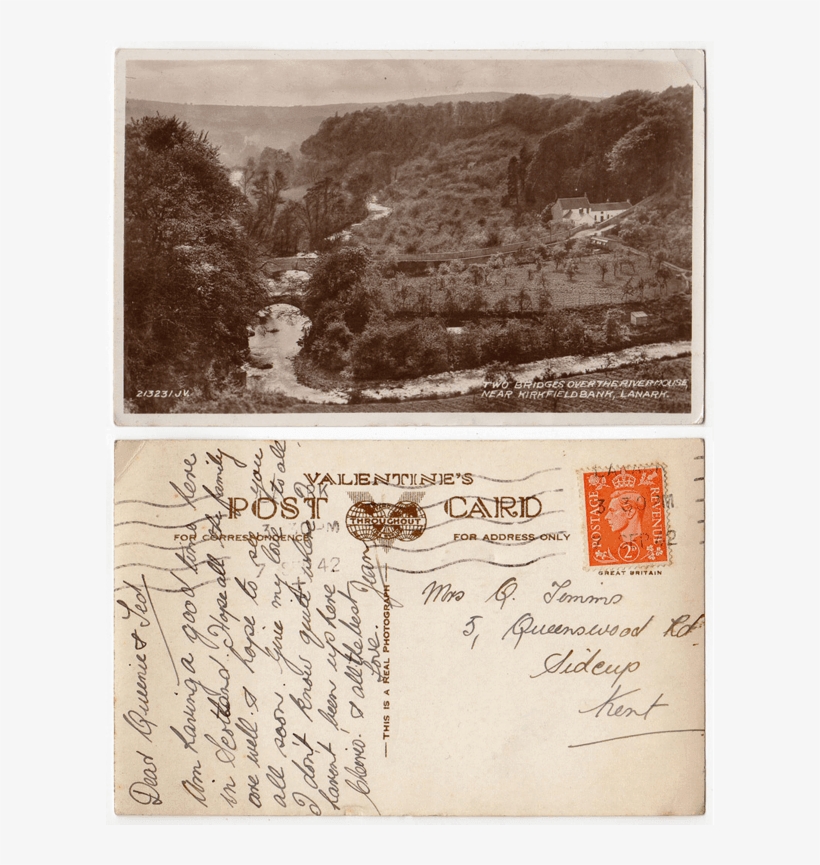 213231 J.V.
TWO BRIDGES OVER THE RIVER MOUSE,
NEAR KIRKFIELDBANK, LANARK.
VALENTINE'S
POST CARD
THROUGHOUT
FOR CORRESPONDENCE
FOR ADDRESS ONLY
POSTAGE
REVENUE
2D
GREAT BRITAIN
3 30 PM
SEP 42
THIS IS A REAL PHOTOGRAPH
Dear Queenie & Ted
Am having a good time here
in Scotland. Hope all the family
are well & hope to see you
all soon. Give my love to all.
I don't know quite when I
haven't been up here
Cheerio. & all the best
Love. Jean
Mrs Q. Temms
5, Queenswood Rd.
Sidcup
Kent